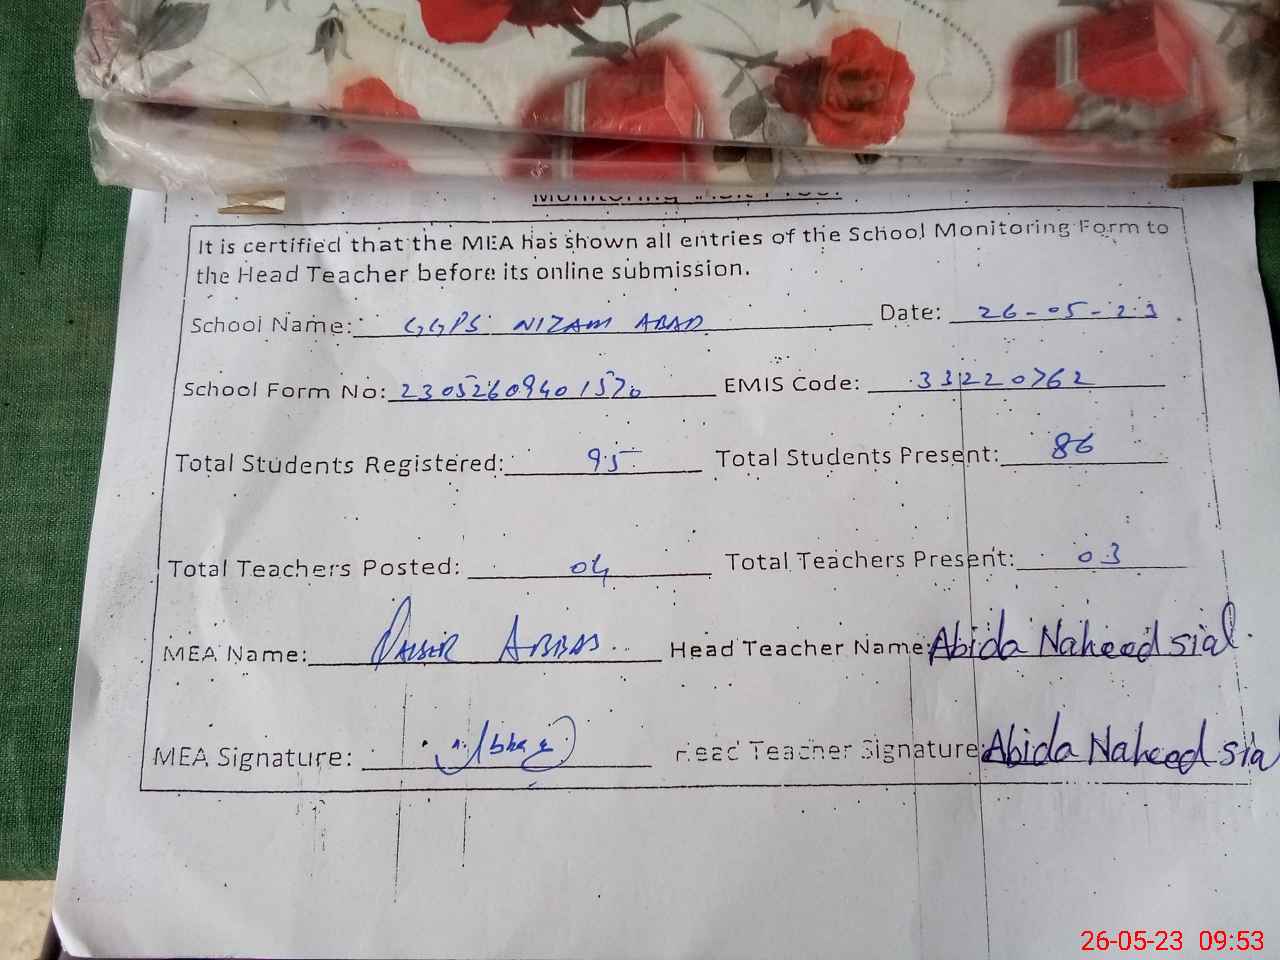 Monitoring Visit Proof
It is certified that the MEA has shown all entries of the School Monitoring Form to
the Head Teacher before its online submission.
School Name: GGPS NIZAM ABAD Date: 26-05-23
School Form No: 23052609401570 EMIS Code: 33220762
Total Students Registered: 95 Total Students Present: 86
Total Teachers Posted: 04 Total Teachers Present: 03
MEA Name: ABBAS Head Teacher Name: Abida Naheed sial.
MEA Signature: Head Teacher Signature Abida Naheed sia
26-05-23 09:53